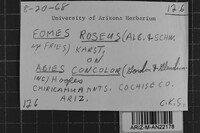 8-20-68 176
University of Arizona Herbarium
FOMES ROSEUS (ALB. & SCHW.
ex FRIES) KARST,
ON
ABIES CONCOLOR (Gordon &
INC) Hoopes
CHIRICAHUA MNTS. COCHISE CO.
ARIZ.
176 C.R.S.
ARIZ-M-AN22178